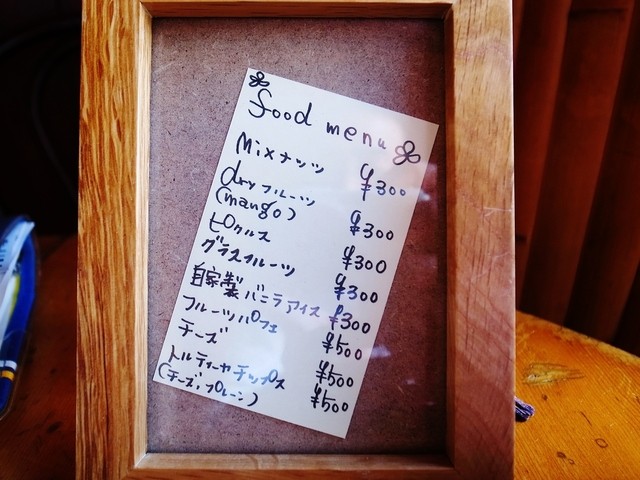 food menu
Mixナッツ ¥300
dryフルーツ ¥300
(mango)
ピクルス ¥300
グラスフルーツ ¥300
自家製バニラアイス ¥300
フルーツパフェ ¥500
チーズ ¥500
トルティーヤチップス ¥500
(チーズ,プレーン)